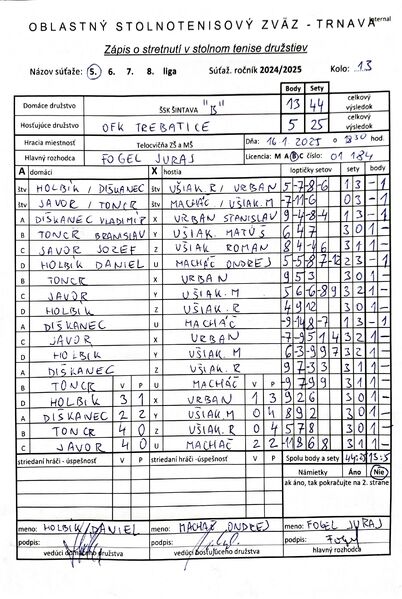 Internal
OBLASTNÝ STOLNOTENISOVÝ ZVÄZ - TRNAVA
Zápis o stretnutí v stolnom tenise družstiev
Názov súťaže: 5. 6. 7. 8. liga Súťaž. ročník 2024/2025 Kolo: 13
Body Sety
Domáce družstvo ŠSK ŠINTAVA "B" 13 44 celkový výsledok
Hosťujúce družstvo OFK TREBATICE 5 25 celkový výsledok
Hracia miestnosť Telocvičňa ZŠ a MŠ Dňa 16.1.2025 o hod.
Hlavný rozhodca FOGEL JURAJ Licencia: M A B C číslo: 01 184
A domáci X hostia loptičky setov sety body
štv HOLBÍK / DIŠKANEC štv UŠIAK.R / URBAN 5 -7 -8 -6 1 3 - 1
štv JAVOR / TONCR štv MACHÁČ / UŠIAK.M -7 -11 -6 0 3 - 1
A DIŠKANEC VLADIMÍR X URBAN STANISLAV 9 -4 -8 -4 1 3 - 1
B TONCR BRANISLAV Y UŠIAK MATÚŠ 6 4 7 3 0 1 -
C JAVOR JOZEF Z UŠIAK ROMAN 8 4 -4 6 3 1 1 -
D HOLBÍK DANIEL U MACHÁČ ONDREJ 5 -5 8 -7 -12 2 3 - 1
B TONCR X URBAN 9 5 3 3 0 1 -
C JAVOR Y UŠIAK.M 5 6 -6 -8 9 3 2 1 -
D HOLBÍK Z UŠIAK.R 4 9 12 3 0 1 -
A DIŠKANEC U MACHÁČ -9 -14 8 -7 1 3 - 1
C JAVOR X URBAN -7 -9 5 1 4 3 2 1 -
D HOLBÍK Y UŠIAK.M 6 -3 -9 9 7 3 2 1 -
A DIŠKANEC Z UŠIAK.R 9 7 -3 3 3 1 1 -
B TONCR V P U MACHÁČ V P -9 7 9 9 3 1 1 -
D HOLBÍK 3 1 X URBAN 1 3 9 2 6 3 0 1 -
A DIŠKANEC 2 2 Y UŠIAK M 0 4 8 9 2 3 0 1 -
B TONCR 4 0 Z UŠIAK.R 0 4 5 7 8 3 0 1 -
C JAVOR 4 0 U MACHÁČ 2 2 -11 8 6 8 3 1 1 -
striedaní hráči - úspešnosť V P striedaní hráči - úspešnosť V P Spolu body a sety 44:25 13:5
Námietky Áno Nie
ak áno, tak pokračujte na 2. strane
meno: HOLBÍK DANIEL meno: MACHÁČ ONDREJ meno: FOGEL JURAJ
podpis: podpis: podpis: Fogel
vedúci domáceho družstva vedúci hosťujúceho družstva hlavný rozhodca